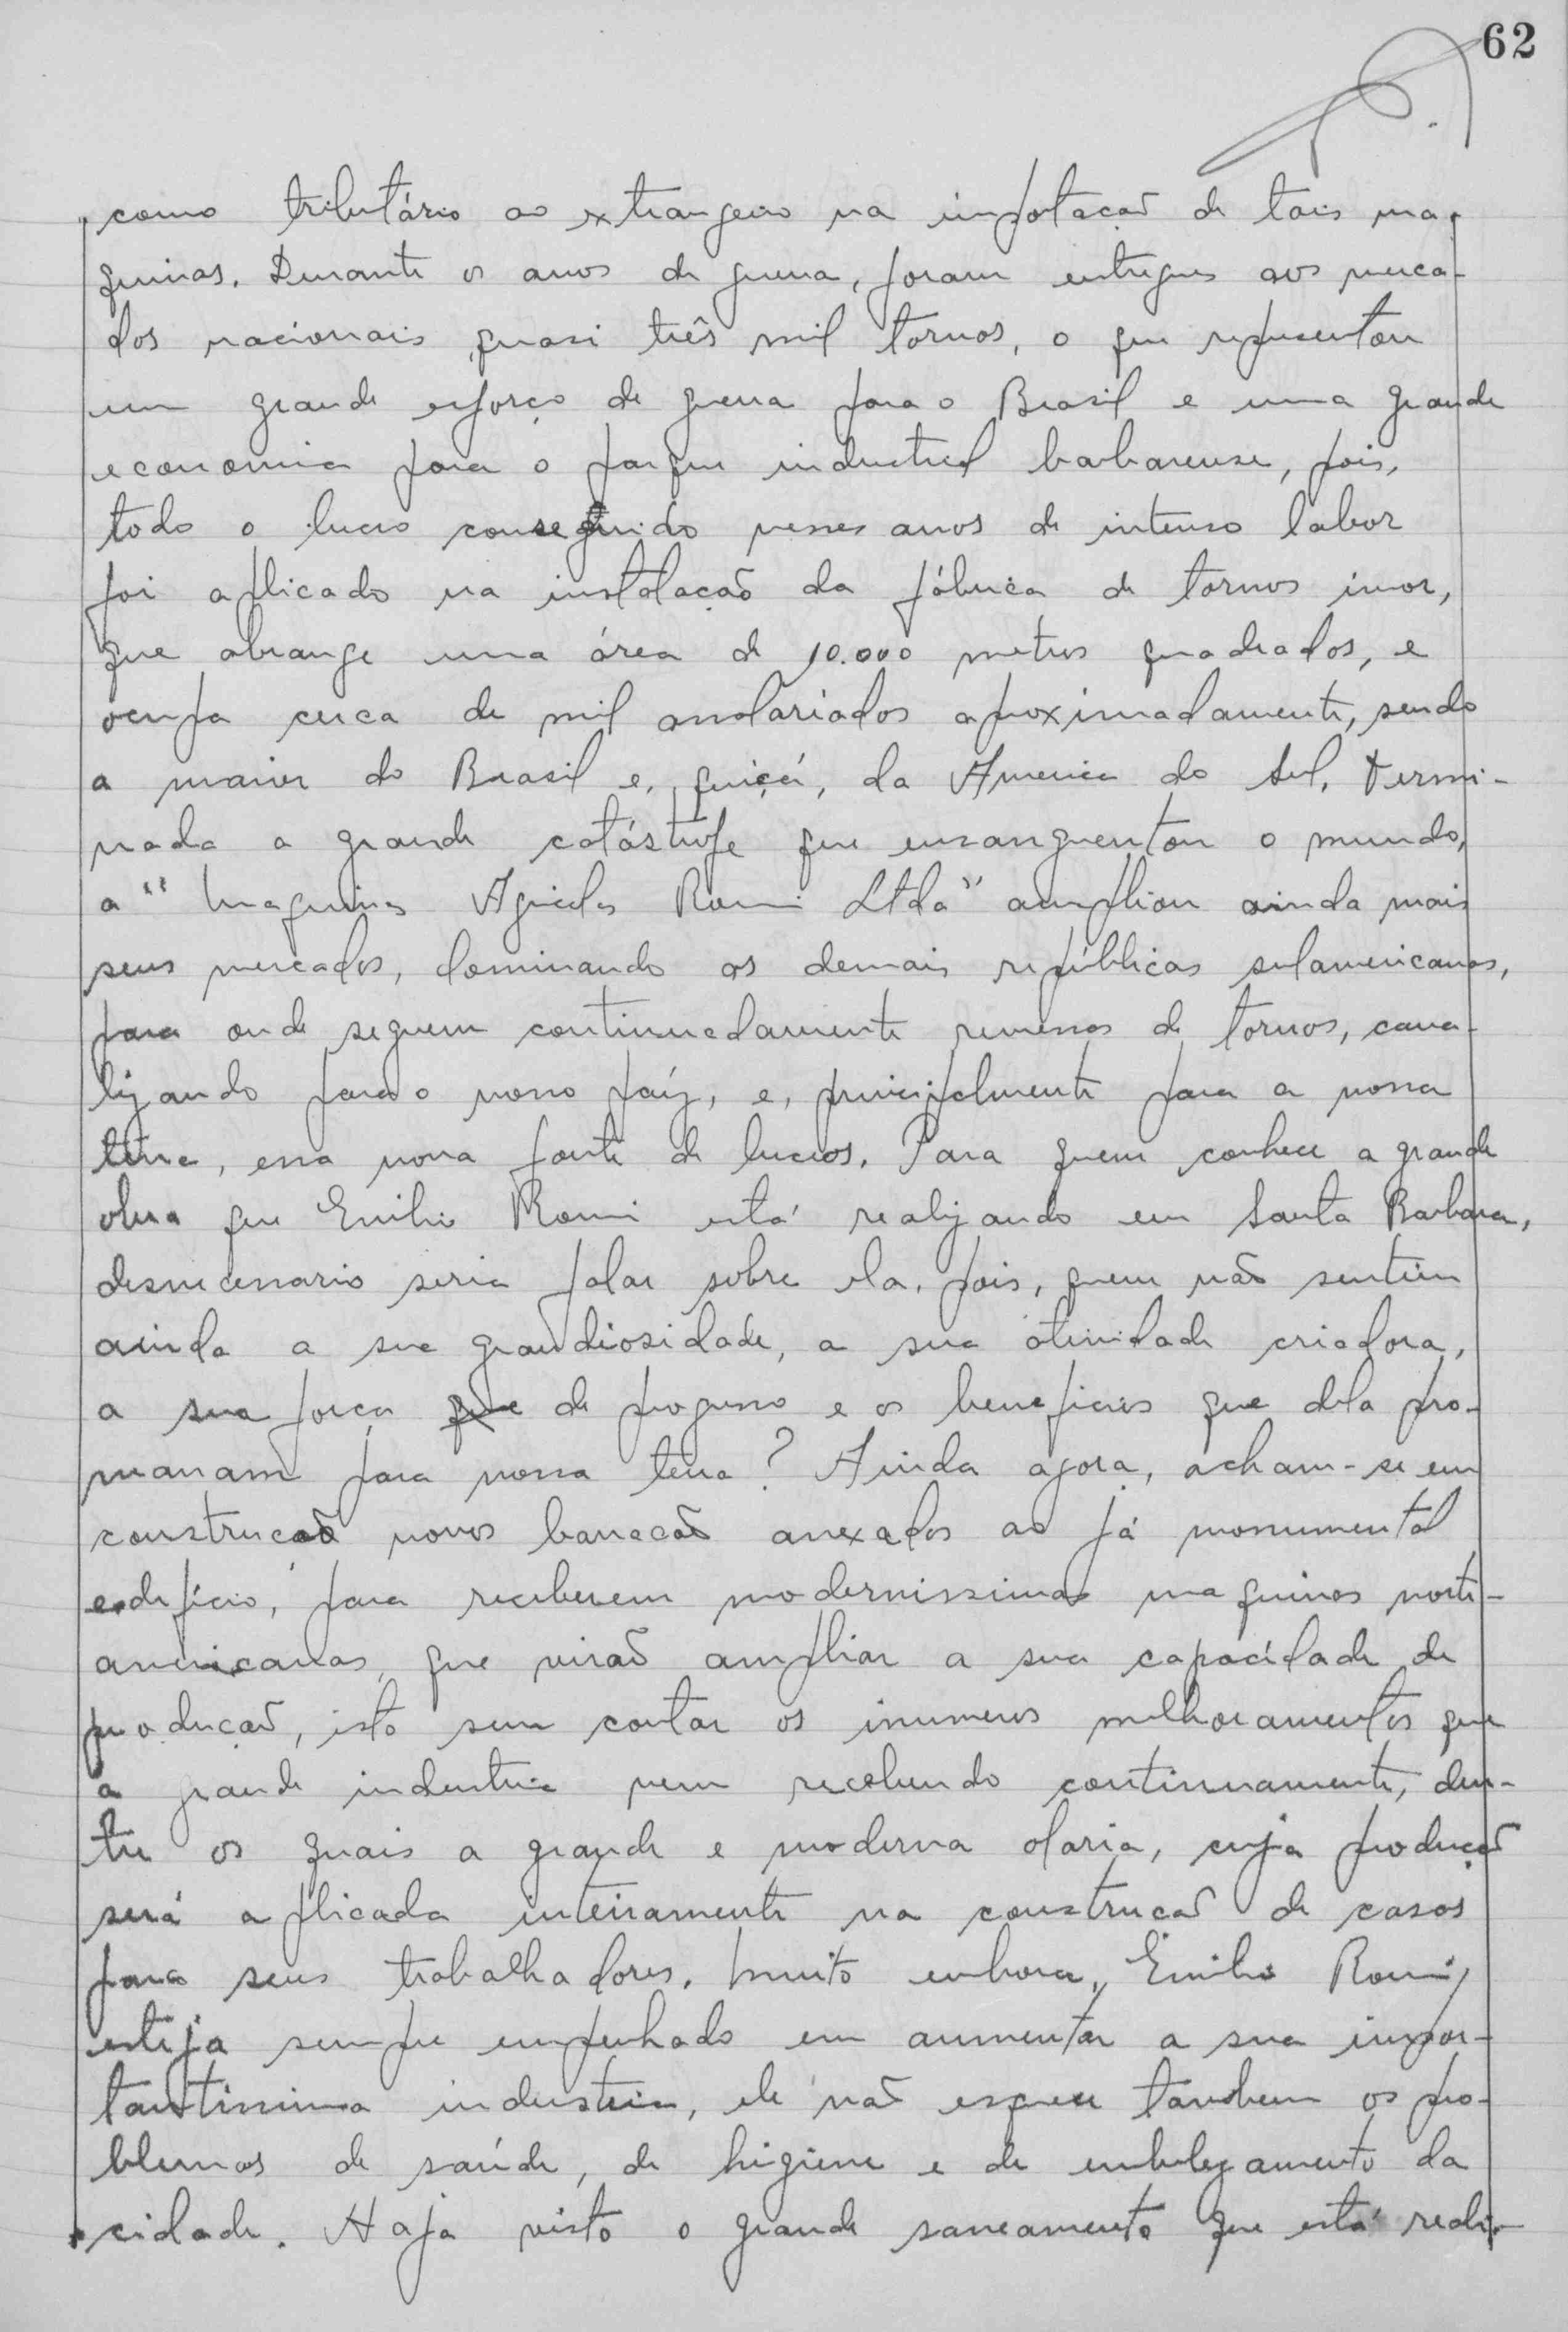 62
como tributário ao extrangeiro na importação de tais ma-
quinas. Durante os anos de guerra, foram entregues aos merca-
dos nacionais quasi três mil tornos, o que representou
um grande esforço de guerra para o Brasil e uma grande
economia para o parque industrial barbarense, pois,
todo o lucro conseguido nesses anos de intenso labor
foi aplicado na instalação da fábrica de tornos imor,
que abrange uma área de 10.000 metros quadrados, e
ocupa cerca de mil assalariados aproximadamente, sendo
a maior do Brasil e, quiçá, da America do Sul. Termi-
nada a grande catástrofe que ensanguentou o mundo,
a "Maquinas Agricolas Romi Ltda" ampliou ainda mais
seus mercados, dominando as demais repúblicas sulamericanas,
para onde seguem continuadamente remessas de tornos, cana-
lizando para o nosso paíz, e, principalmente para a nossa
terra, essa nova fonte de lucros. Para quem conhece a grande
obra que Emilio Romi está realizando em Santa Barbara,
desnecessario seria falar sobre ela, pois, quem não sentiu
ainda a sua grandiosidade, a sua atividade criadora,
a sua força que de progresso e os beneficios que dela pro-
manam para nossa terra? Ainda agora, acham-se em
construcão novos barracões anexados ao já monumental
edifício, para receberem modernissimas maquinas norte-
americanas, que virão ampliar a sua capacidade de
produção, isto sem contar os inumeros melhoramentos que
a grande industria vem recebendo continuamente, den-
tre os quais a grande e moderna olaria, cuja produção
será aplicada inteiramente na construcão de casas
para seus trabalhadores. Muito embora, Emilio Romi,
esteja sempre empenhado em aumentar a sua impor-
tantissima industria, ele não esquece tambem os pro-
blemas de saúde, de higiene e de embelezamento da
cidade. Haja visto o grande saneamento que está reali-